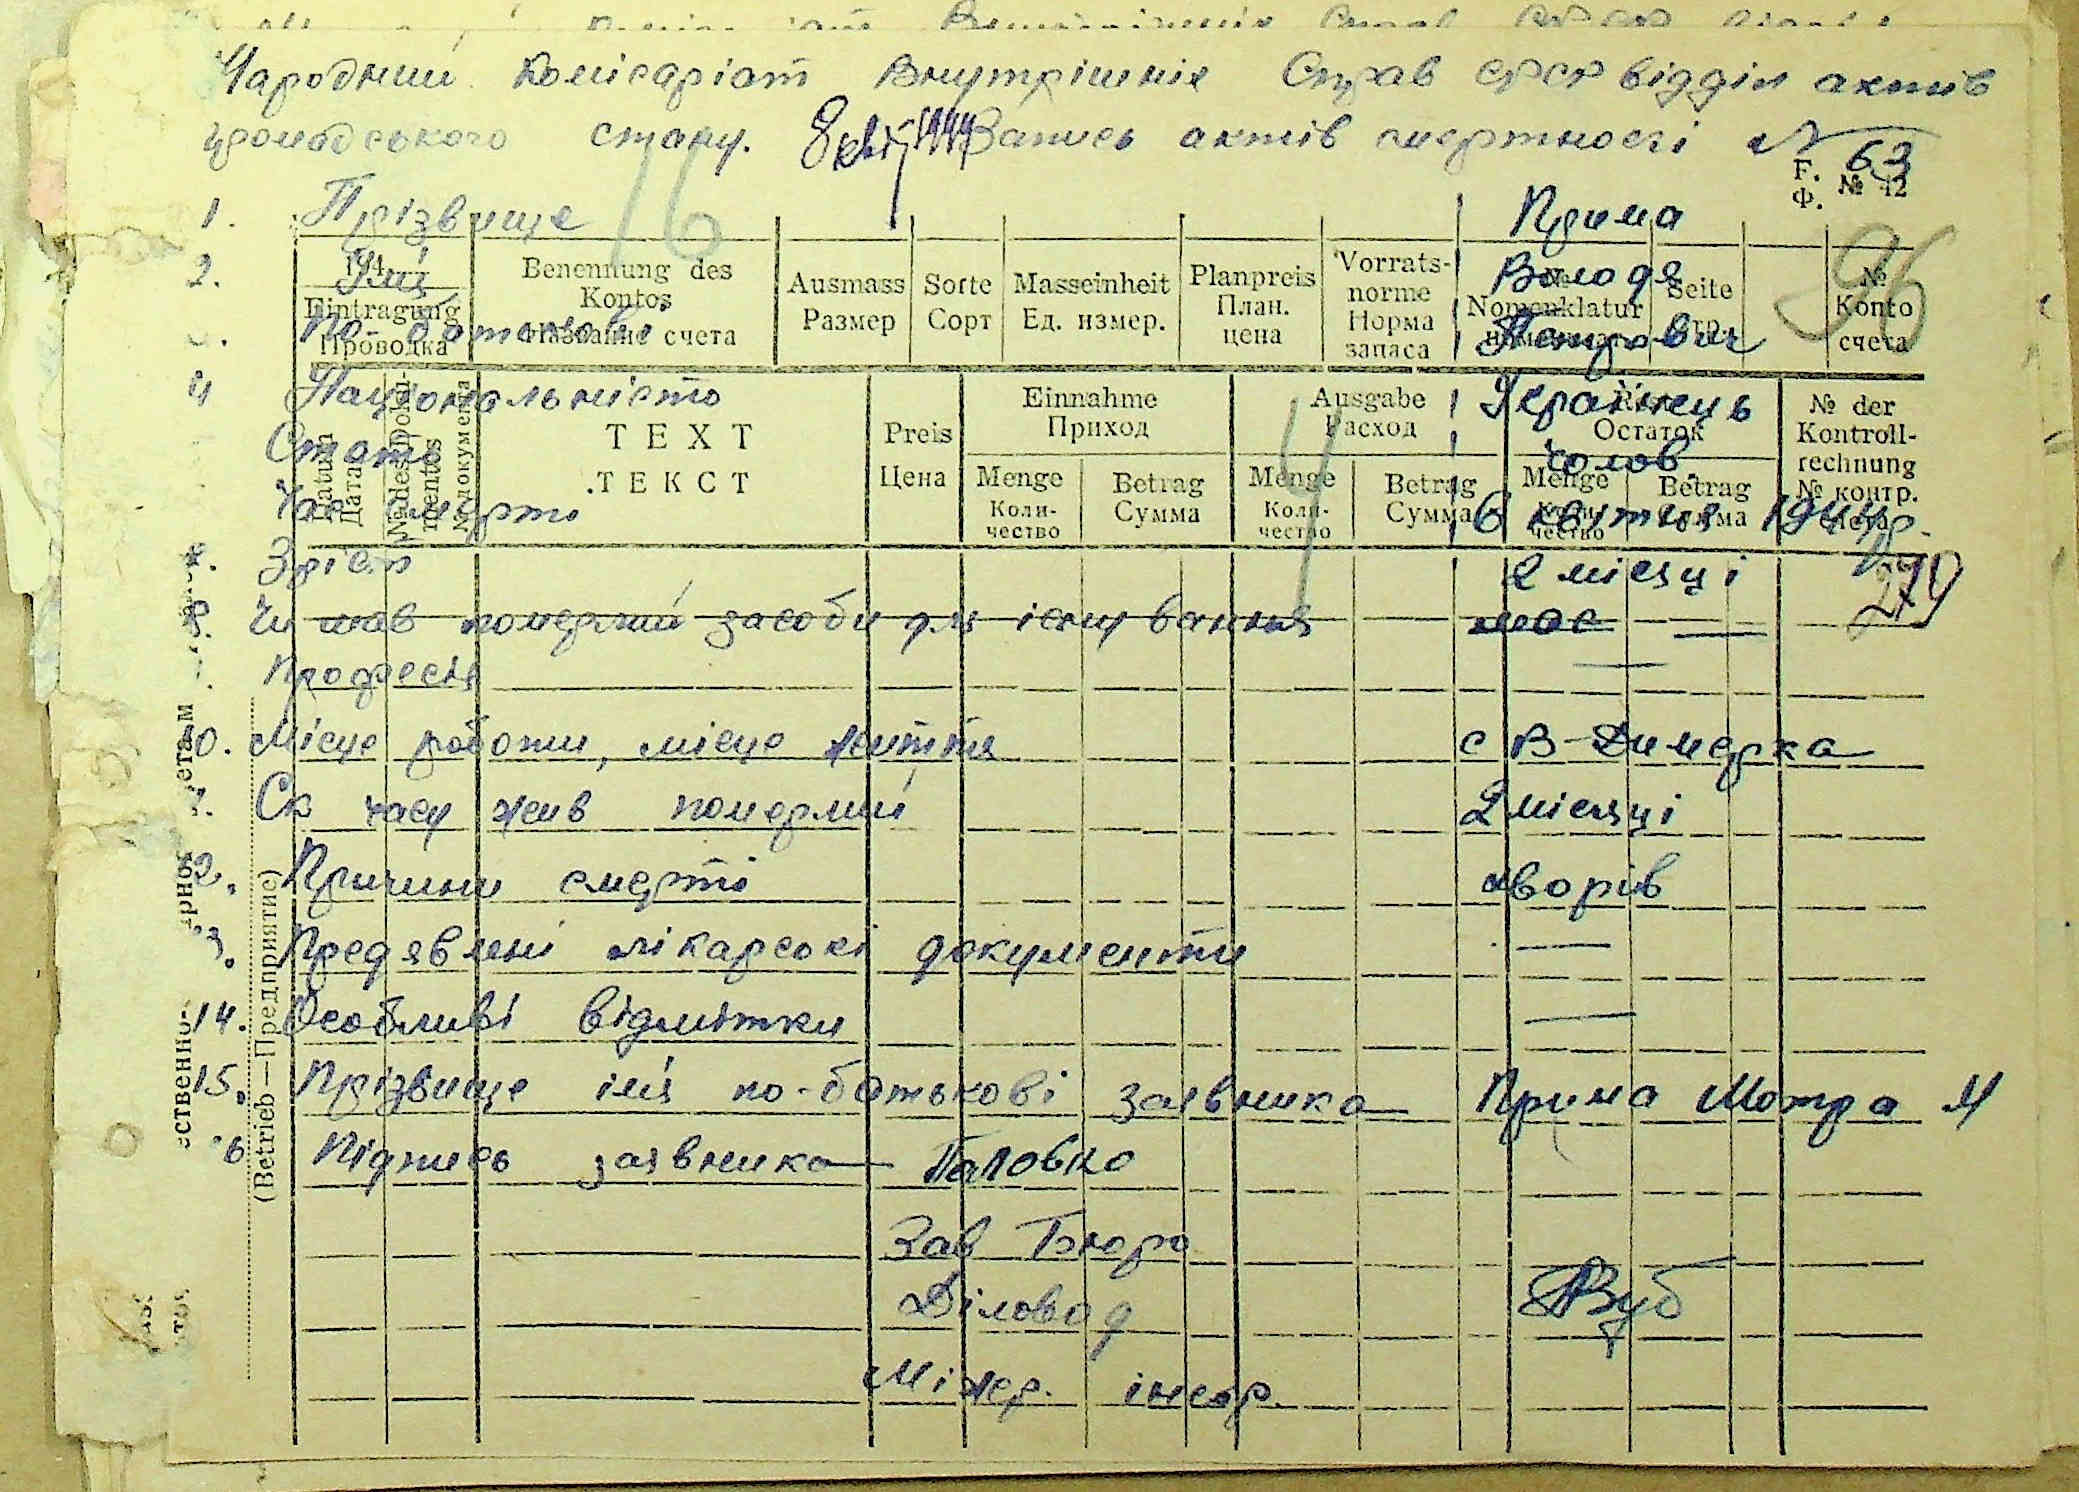 Народний Комісаріат Внутрішніх Справ СРСР відділ актів
громадського стану. 8 квіт 1944 Запись актів смертности №63
F. Ф. № 42
1. Прізвище Прима
16
2. Імя Володя
96
По-батькові Петрович
194
Eintragung Проводка
Benennung des Kontos Название счета
Ausmass Размер
Sorte Сорт
Masseinheit Ед. измер.
Planpreis План. цена
Vorratsnorme Норма запаса
№ Nomenklatur
Seite Стр.
№ Konto счета
4 Національність Українець
Стать чолов.
Час смерті 6 квітня 1944 р.
Datum Дата
№ des Dokumentes № документа
TEXT ТЕКСТ
Preis Цена
Einnahme Приход
Ausgabe Расход
Остаток
Menge Количество
Betrag Сумма
Menge Количество
Betrag Сумма
Menge Количество
Betrag Сумма
№ der Kontrollrechnung № контр. счета
4
7. Зріст 2 місяці
279
8. Чи мав померший засоби для існування має —
Професія —
10. Місце роботи, місце життя с В-Димерка
Ск часу жив померлий 2 місяці
12. Причини смерті хворів
13. Предявлені лікарські документи —
14. Особливі відмітки —
15. Прізвище імя по-батькові заявника Прима Мотра М
16 Підпись заявника
Зав Бюро
Діловод
(Betrieb—Предприятие)